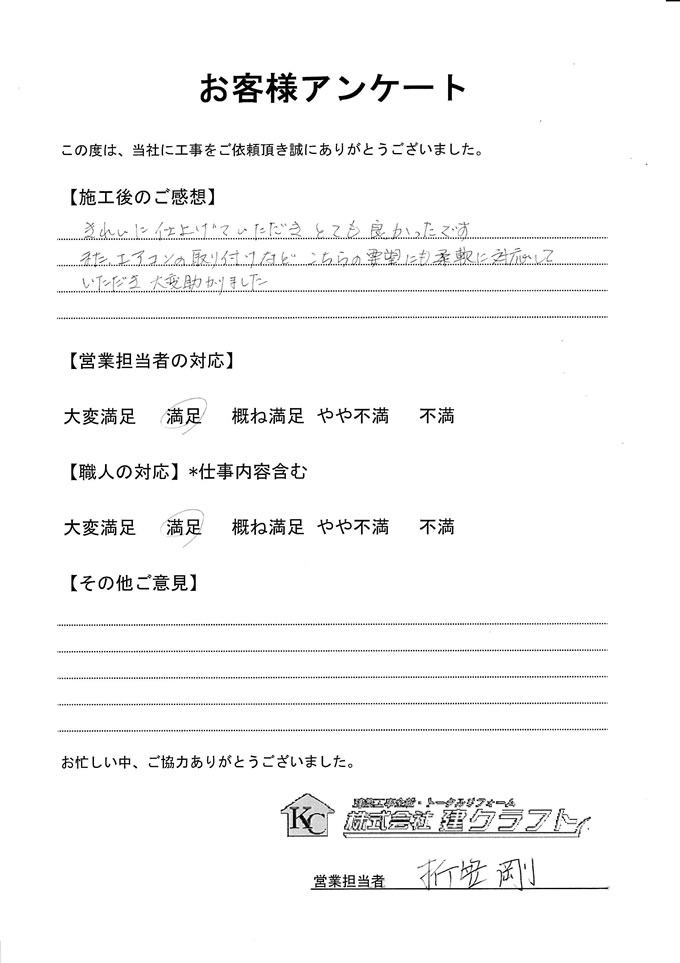 お客様アンケート
この度は、当社に工事をご依頼頂き誠にありがとうございました。
【施工後のご感想】
きれいに仕上げていただきとても良かったです
またエアコンの取り付けなど こちらの要望にも柔軟に対応して
いただき大変助かりました
【営業担当者の対応】
大変満足 満足 概ね満足 やや不満 不満
【職人の対応】*仕事内容含む
大変満足 満足 概ね満足 やや不満 不満
【その他ご意見】
お忙しい中、ご協力ありがとうございました。
建築工事全般・トータルリフォーム
KC 株式会社 建クラフト
営業担当者 折 剛